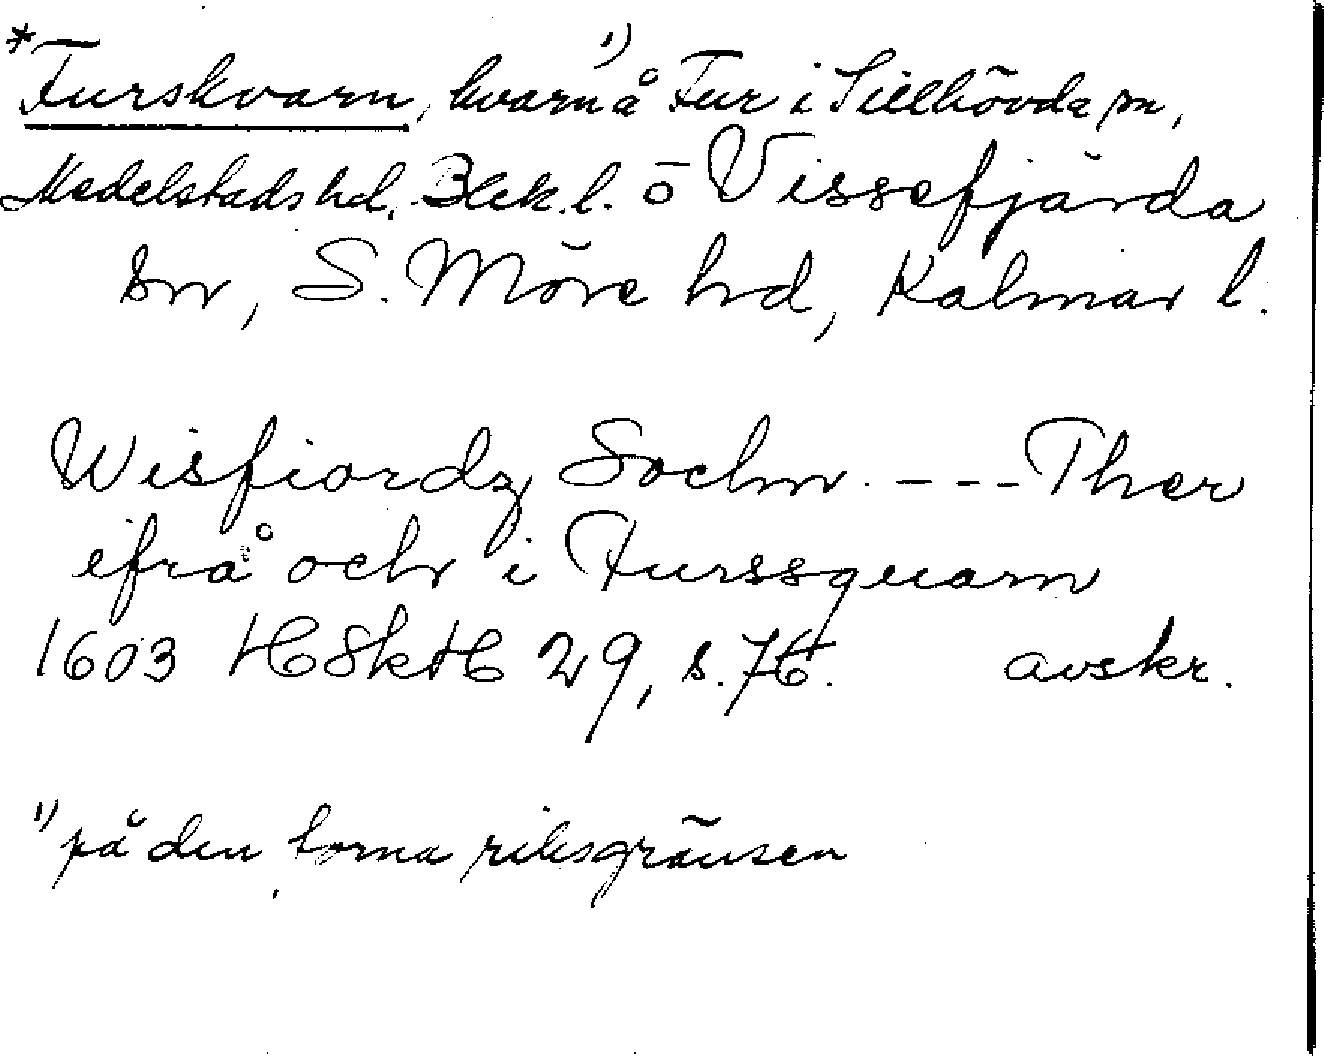 *Furskvarn, kvarn ¹⁾ å Fur i Sillhövda sn,
Medelstads hd. Blek. l. o Vissefjärda
sn, S. Möre hd, Kalmar l.
Wisfiordz Sochn. --- Ther
ifrå och i Furssquarn
1603 HSkH 29, s. 76. avskr.
¹⁾ på den forna riksgränsen